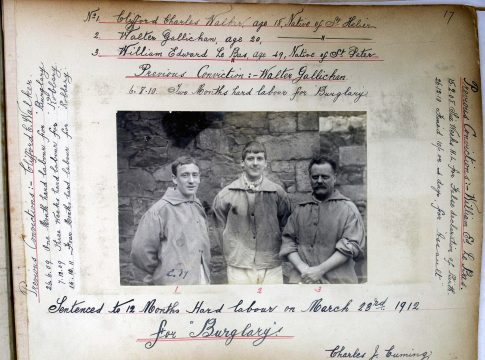 17
No 1. Clifford Charles Walker, age 18, Native of St Helier
2. Walter Gallichan, age 20, "
3. William Edward Le Bas, age 49, Native of St Peter.
Previous Conviction :- Walter Gallichan
6.8.10. Two Months hard labour for Burglary
Previous Convictions :- Clifford C Walker
26.6.09 One Month hard labour for Burglary.
7.12.09 Three Weeks hard labour for Robbery.
26.12.10 Four Months hard labour for Robbery
Previous Convictions :- William Ed Le Bas.
15.2.08 Six Weeks H.L. for False declaration of Birth
26.12.10 Fined or days for Assault
1 2 3
Sentenced to 12 Months Hard labour on March 23rd 1912
for "Burglary"
Charles J. Cuming